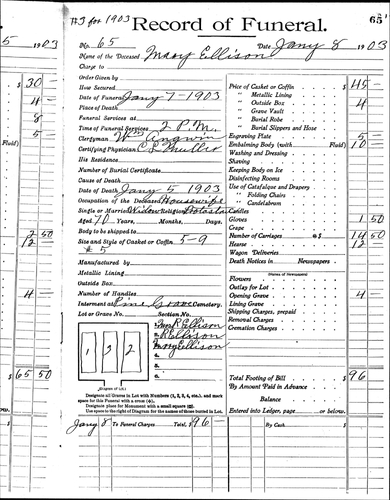 #3 for 1903
Record of Funeral.
65
5 1903
No. 65
Date Jany 8 1903
Name of the Deceased Mary Ellison
Charge to
Order Given by
How Secured
Date of Funeral Jany 7 - 1903
Place of Death
Funeral Services at
Time of Funeral Services 2 P.M.
Clergyman
Certifying Physician
His Residence
Number of Burial Certificate
Cause of Death
Date of Death Jany 5 1903
Occupation of the Deceased Housewife
Single or Married Widow Religion
Aged 70 Years, Months, Days
Body to be shipped to
Size and Style of Casket or Coffin 5-9
# 5
Manufactured by
Metallic Lining
Outside Box
Number of Handles
Interment at Pine Grove Cemetery.
Lot or Grave No. Section No.
1 3 2
Ellison
Ellison
Mary Ellison
(Diagram of Lot.)
Designate all Graves in Lot with Numbers (1, 2, 3, 4, etc.), and mark
space for this Funeral with a cross (x).
Designate place for Monument with a small square (□).
Use space to the right of Diagram for the names of those buried in Lot.
Jany 8 To Funeral Charges Total $96 -
Price of Casket or Coffin $45 -
" Metallic Lining
" Outside Box 4 -
" Grave Vault
" Burial Robe
" Burial Slippers and Hose
Engraving Plate 5 -
Embalming Body (with Fluid) 10 -
Washing and Dressing
Shaving
Keeping Body on Ice
Disinfecting Rooms
Use of Catafalque and Drapery
" Folding Chairs
" Candelabrum
Candles
Gloves 1 50
Crape
Number of Carriages @ $ 14 50
Hearse 12 -
Wagon Deliveries
Death Notices in Newspapers
(Names of Newspapers)
Flowers
Outlay for Lot
Opening Grave 4 -
Lining Grave
Shipping Charges, prepaid
Removal Charges
Cremation Charges
Total Footing of Bill $96
By Amount Paid in Advance
Balance
Entered into Ledger, page or below.
By Cash $
$ 30 -
4 -
8
5 -
Fluid)
2 50
12 -
4 -
$ 65 50